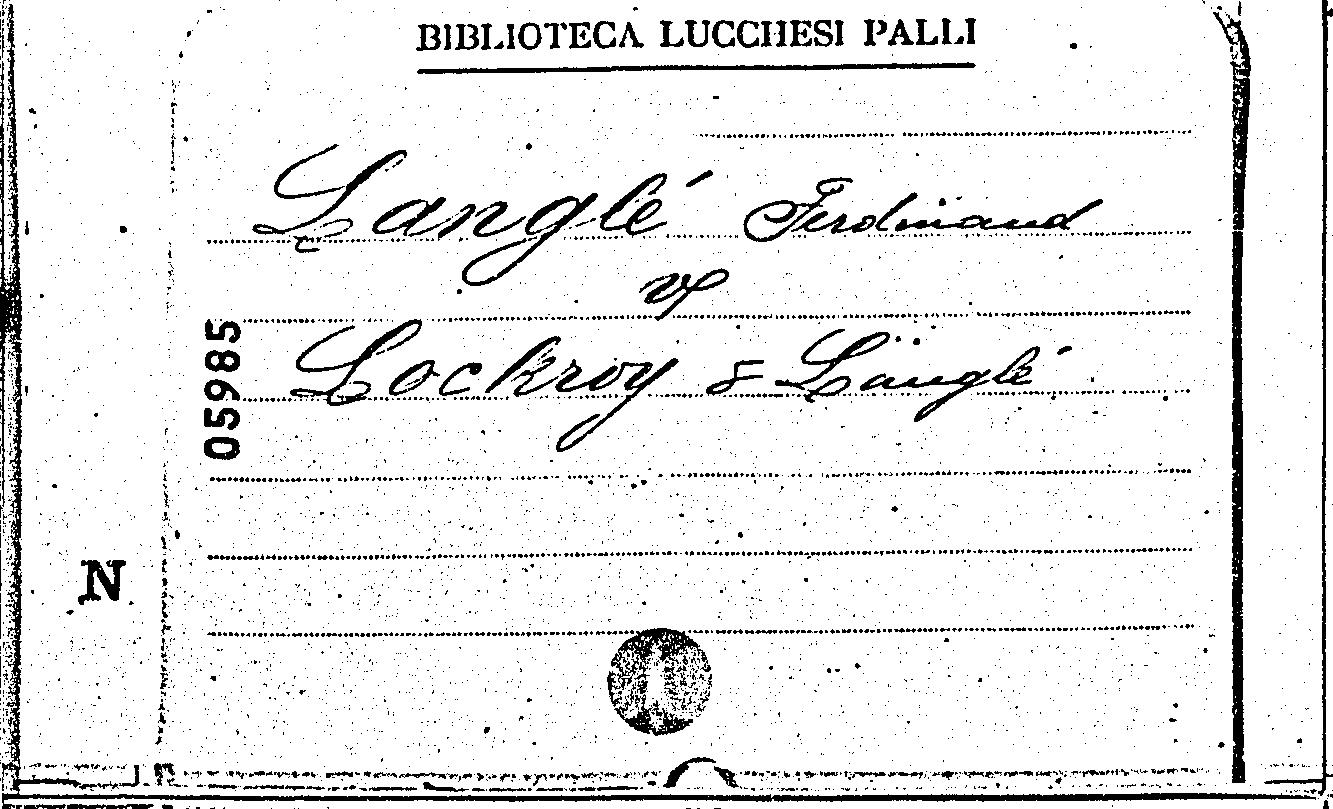 BIBLIOTECA LUCCHESI PALLI
Langlé Ferdinand
v
Lockroy & Langlé
05985
N